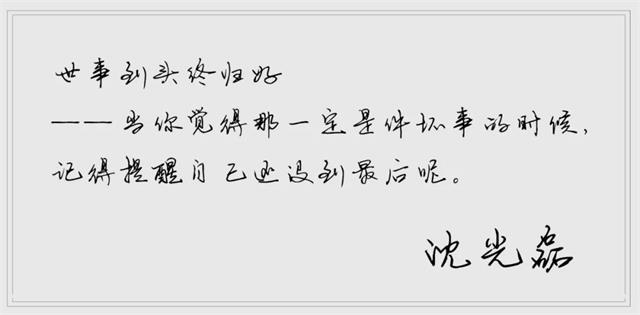 世事到头终归好
——当你觉得那一定是件坏事的时候，
记得提醒自己还没到最后呢。
沈光磊